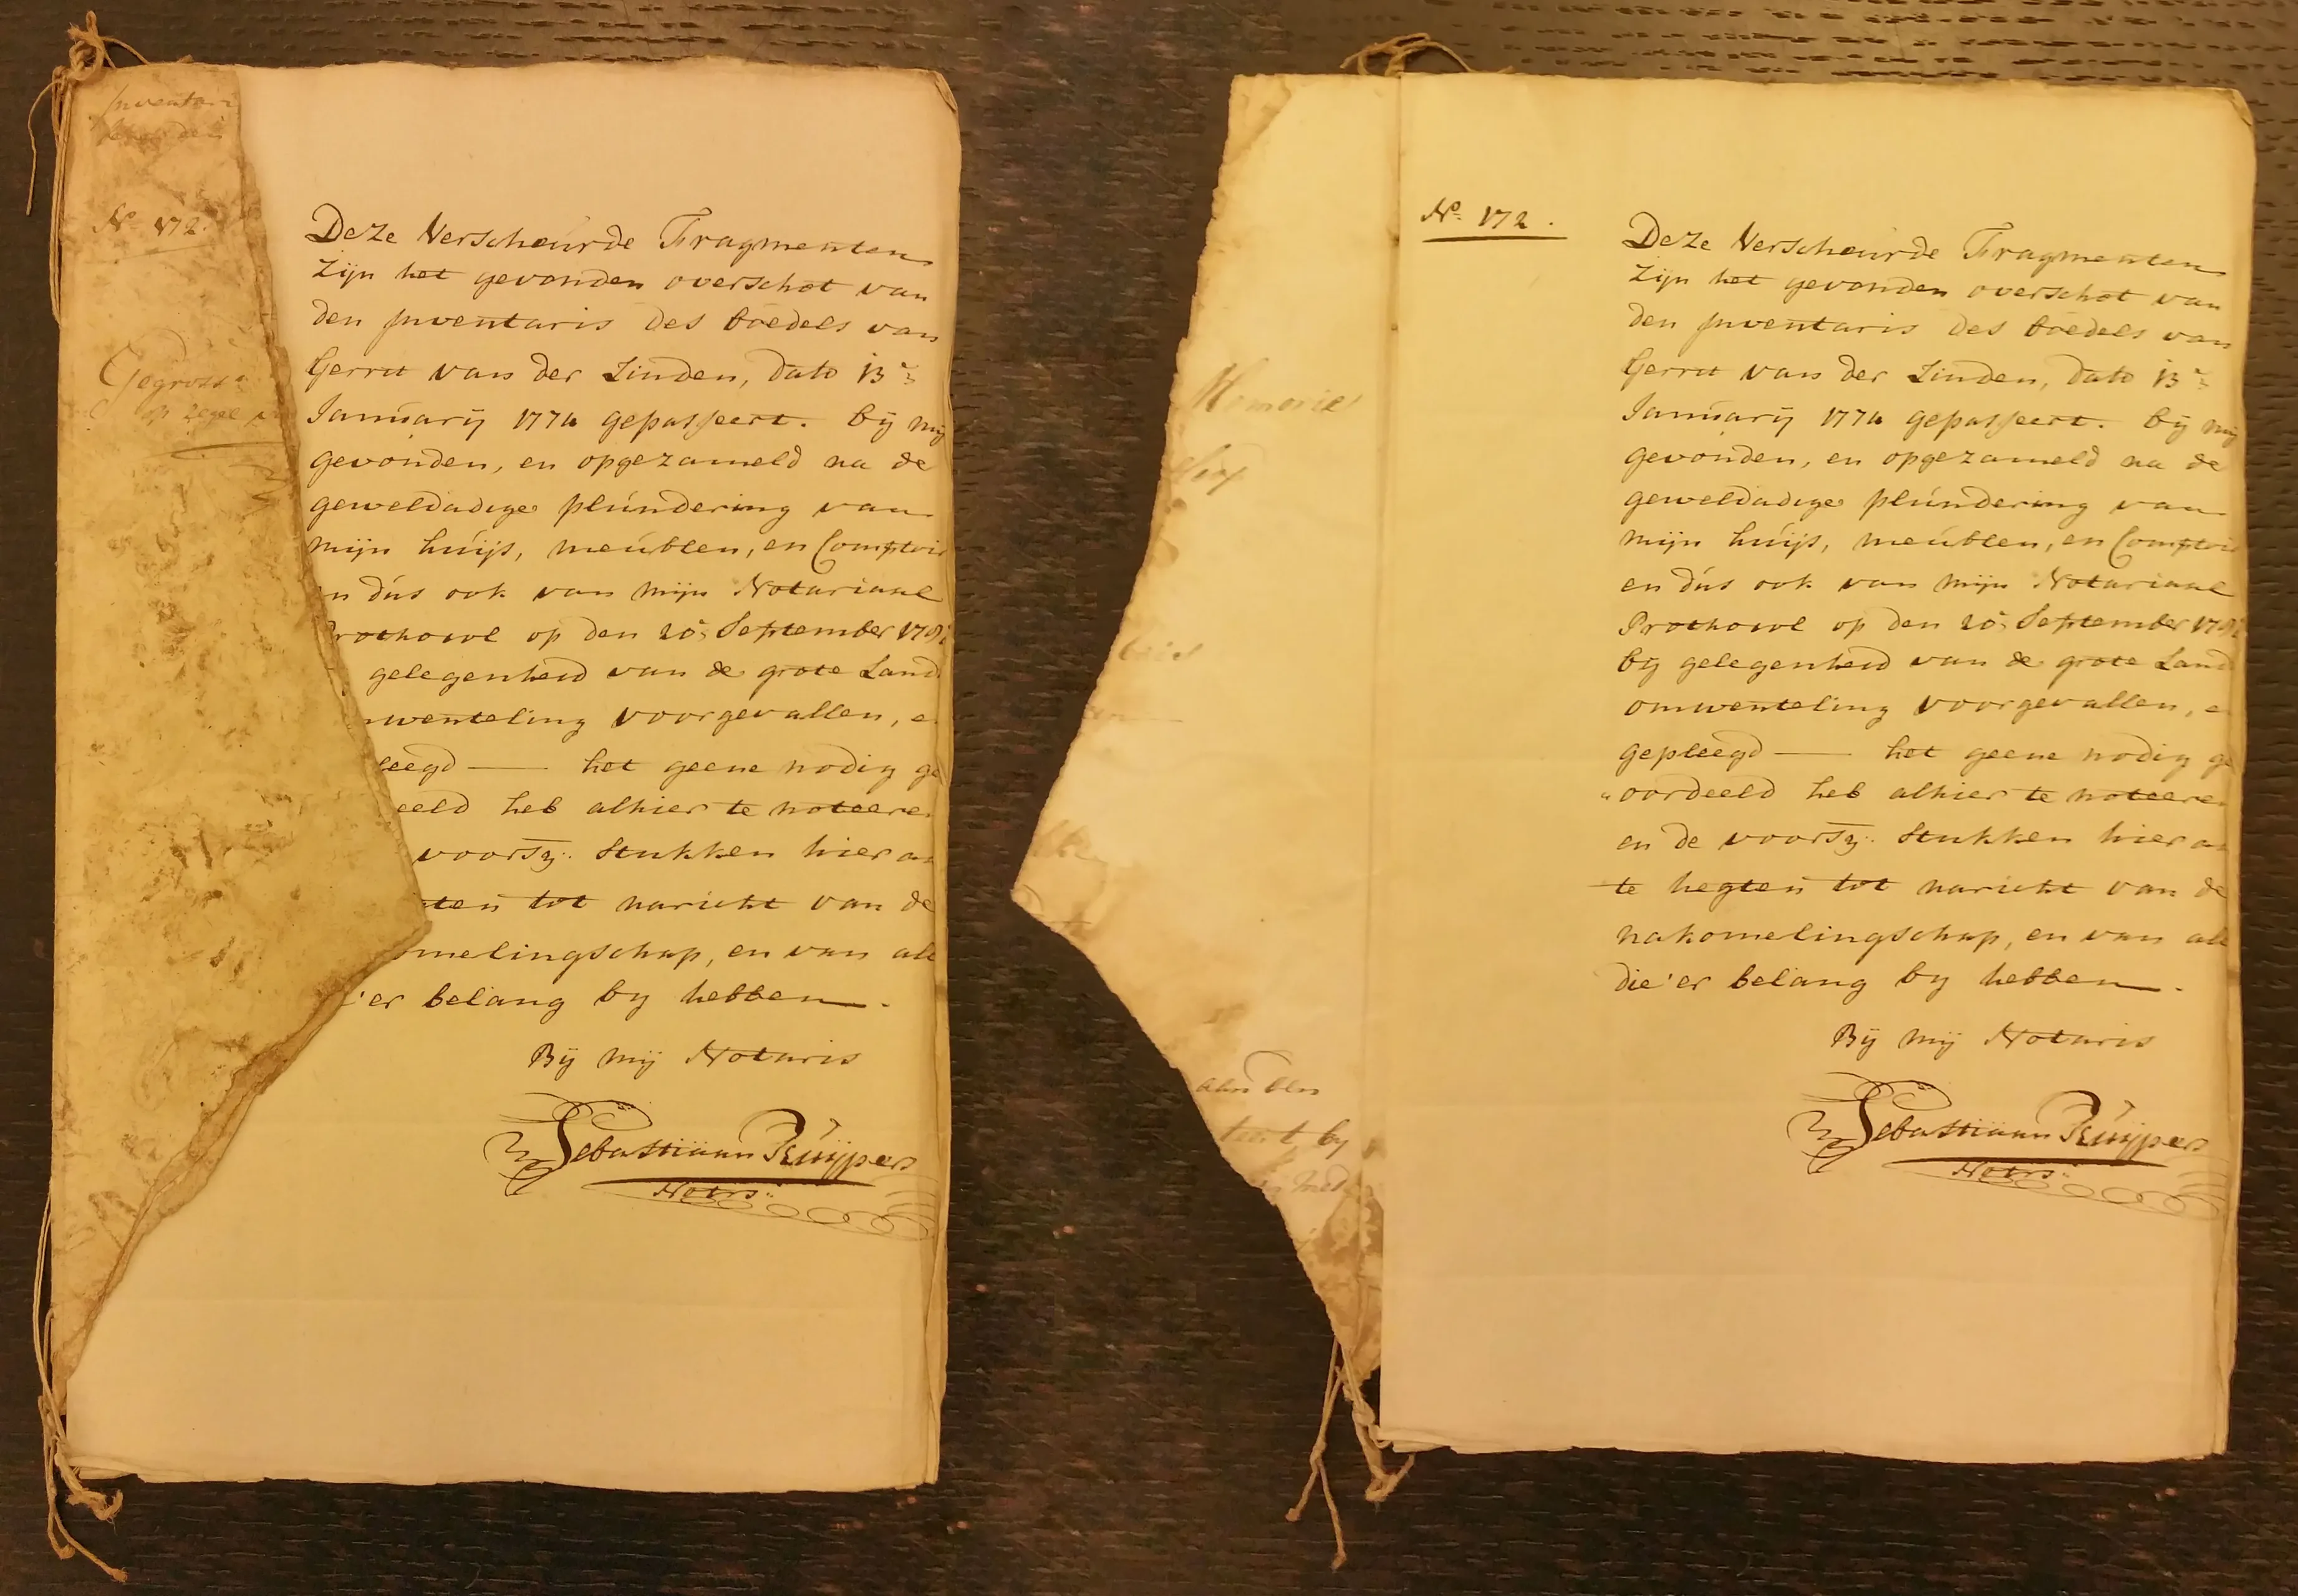 Inventari
No 172.
Gegross
op zegel
Deze Verscheurde Fragmenten
zijn het gevonden overschot van
den Inventaris des boedels van
Gerrit van der Linden, dato 13
January 1774 gepasseert. bij mij
gevonden, en opgezameld na de
geweldadige plundering van
mijn huijs, meublen, en Comptoi
n dus ook van mijn Notariaal
rothocol op den 20 September 178
gelegenheid van de grote Land
wenteling voorgevallen, e
leegd — het geene nodig ge
eeld heb alhier te noteere
voorsz: stukken hier a
ten tot naricht van de
omelingschap, en van all
'er belang by hebben.
Bij mij Notaris
Sebastiaan Kuijpers
Notrs:
Memorie
aan den
by
No. 172.
Deze Verscheurde Fragmenten
zijn het gevonden overschot van
den Inventaris des boedels van
Gerrit van der Linden, dato 13
January 1774 gepasseert. bij mij
gevonden, en opgezameld na de
geweldadige plundering van
mijn huijs, meublen, en Comptoi
en dus ook van mijn Notariaal
Prothocol op den 20 September 178
bij gelegenheid van de grote Land
omwenteling voorgevallen, e
gepleegd — het geene nodig ge
"oordeeld heb alhier te noteere
en de voorsz: stukken hier a
te hegten tot naricht van de
nakomelingschap, en van all
die 'er belang by hebben.
Bij mij Notaris
Sebastiaan Kuijpers
Notrs: